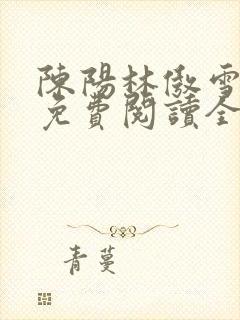 陳陽林傲雪
免費閱讀全
青蔓